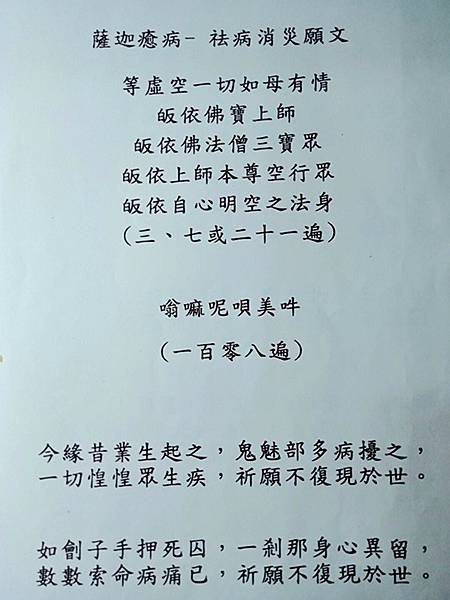 薩迦癒病- 祛病消災願文
等虛空一切如母有情
皈依佛寶上師
皈依佛法僧三寶眾
皈依上師本尊空行眾
皈依自心明空之法身
(三、七或二十一遍)
嗡嘛呢唄美吽
(一百零八遍)
今緣昔業生起之，鬼魅部多病擾之，
一切惶惶眾生疾，祈願不復現於世。
如劊子手押死囚，一剎那身心異留，
數數索命病痛已，祈願不復現於世。